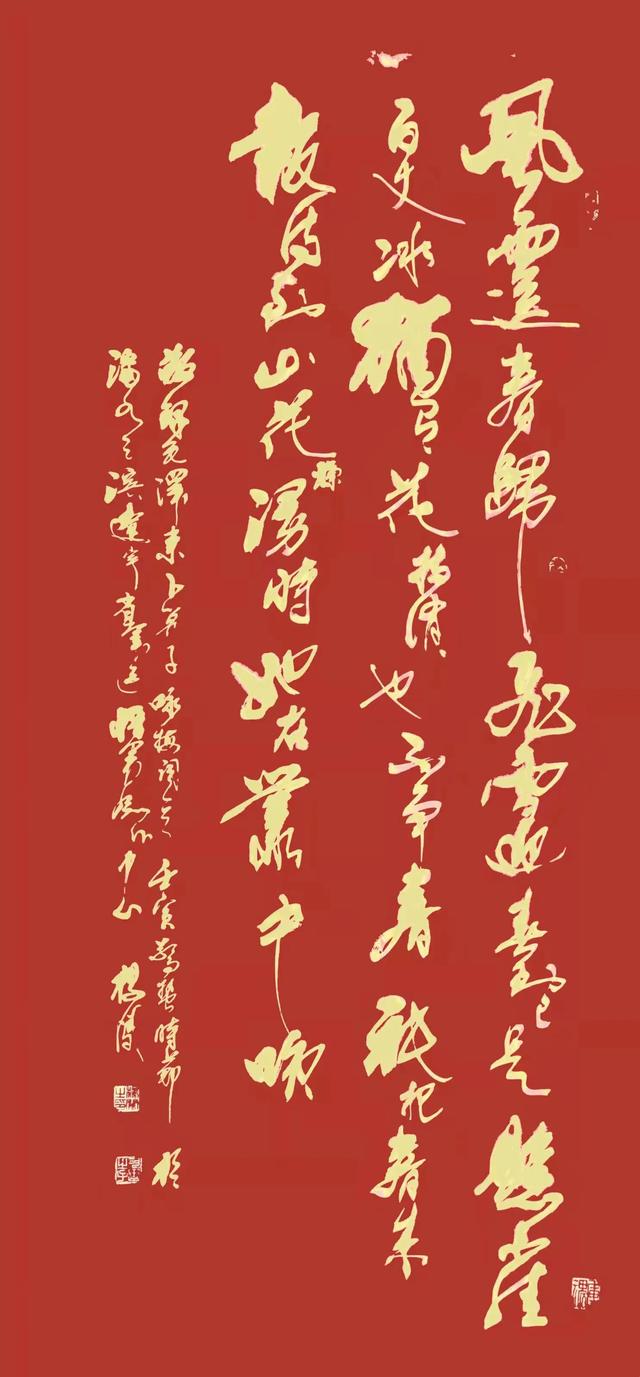 風雨送春歸飛雪迎春到已是懸崖
百丈冰猶有花枝俏、也不爭春祇把春來
報待到山花爛漫時她在叢中咲
毛澤東卜算子咏梅词 壬寅驚蟄時節 於
之滨遼寧